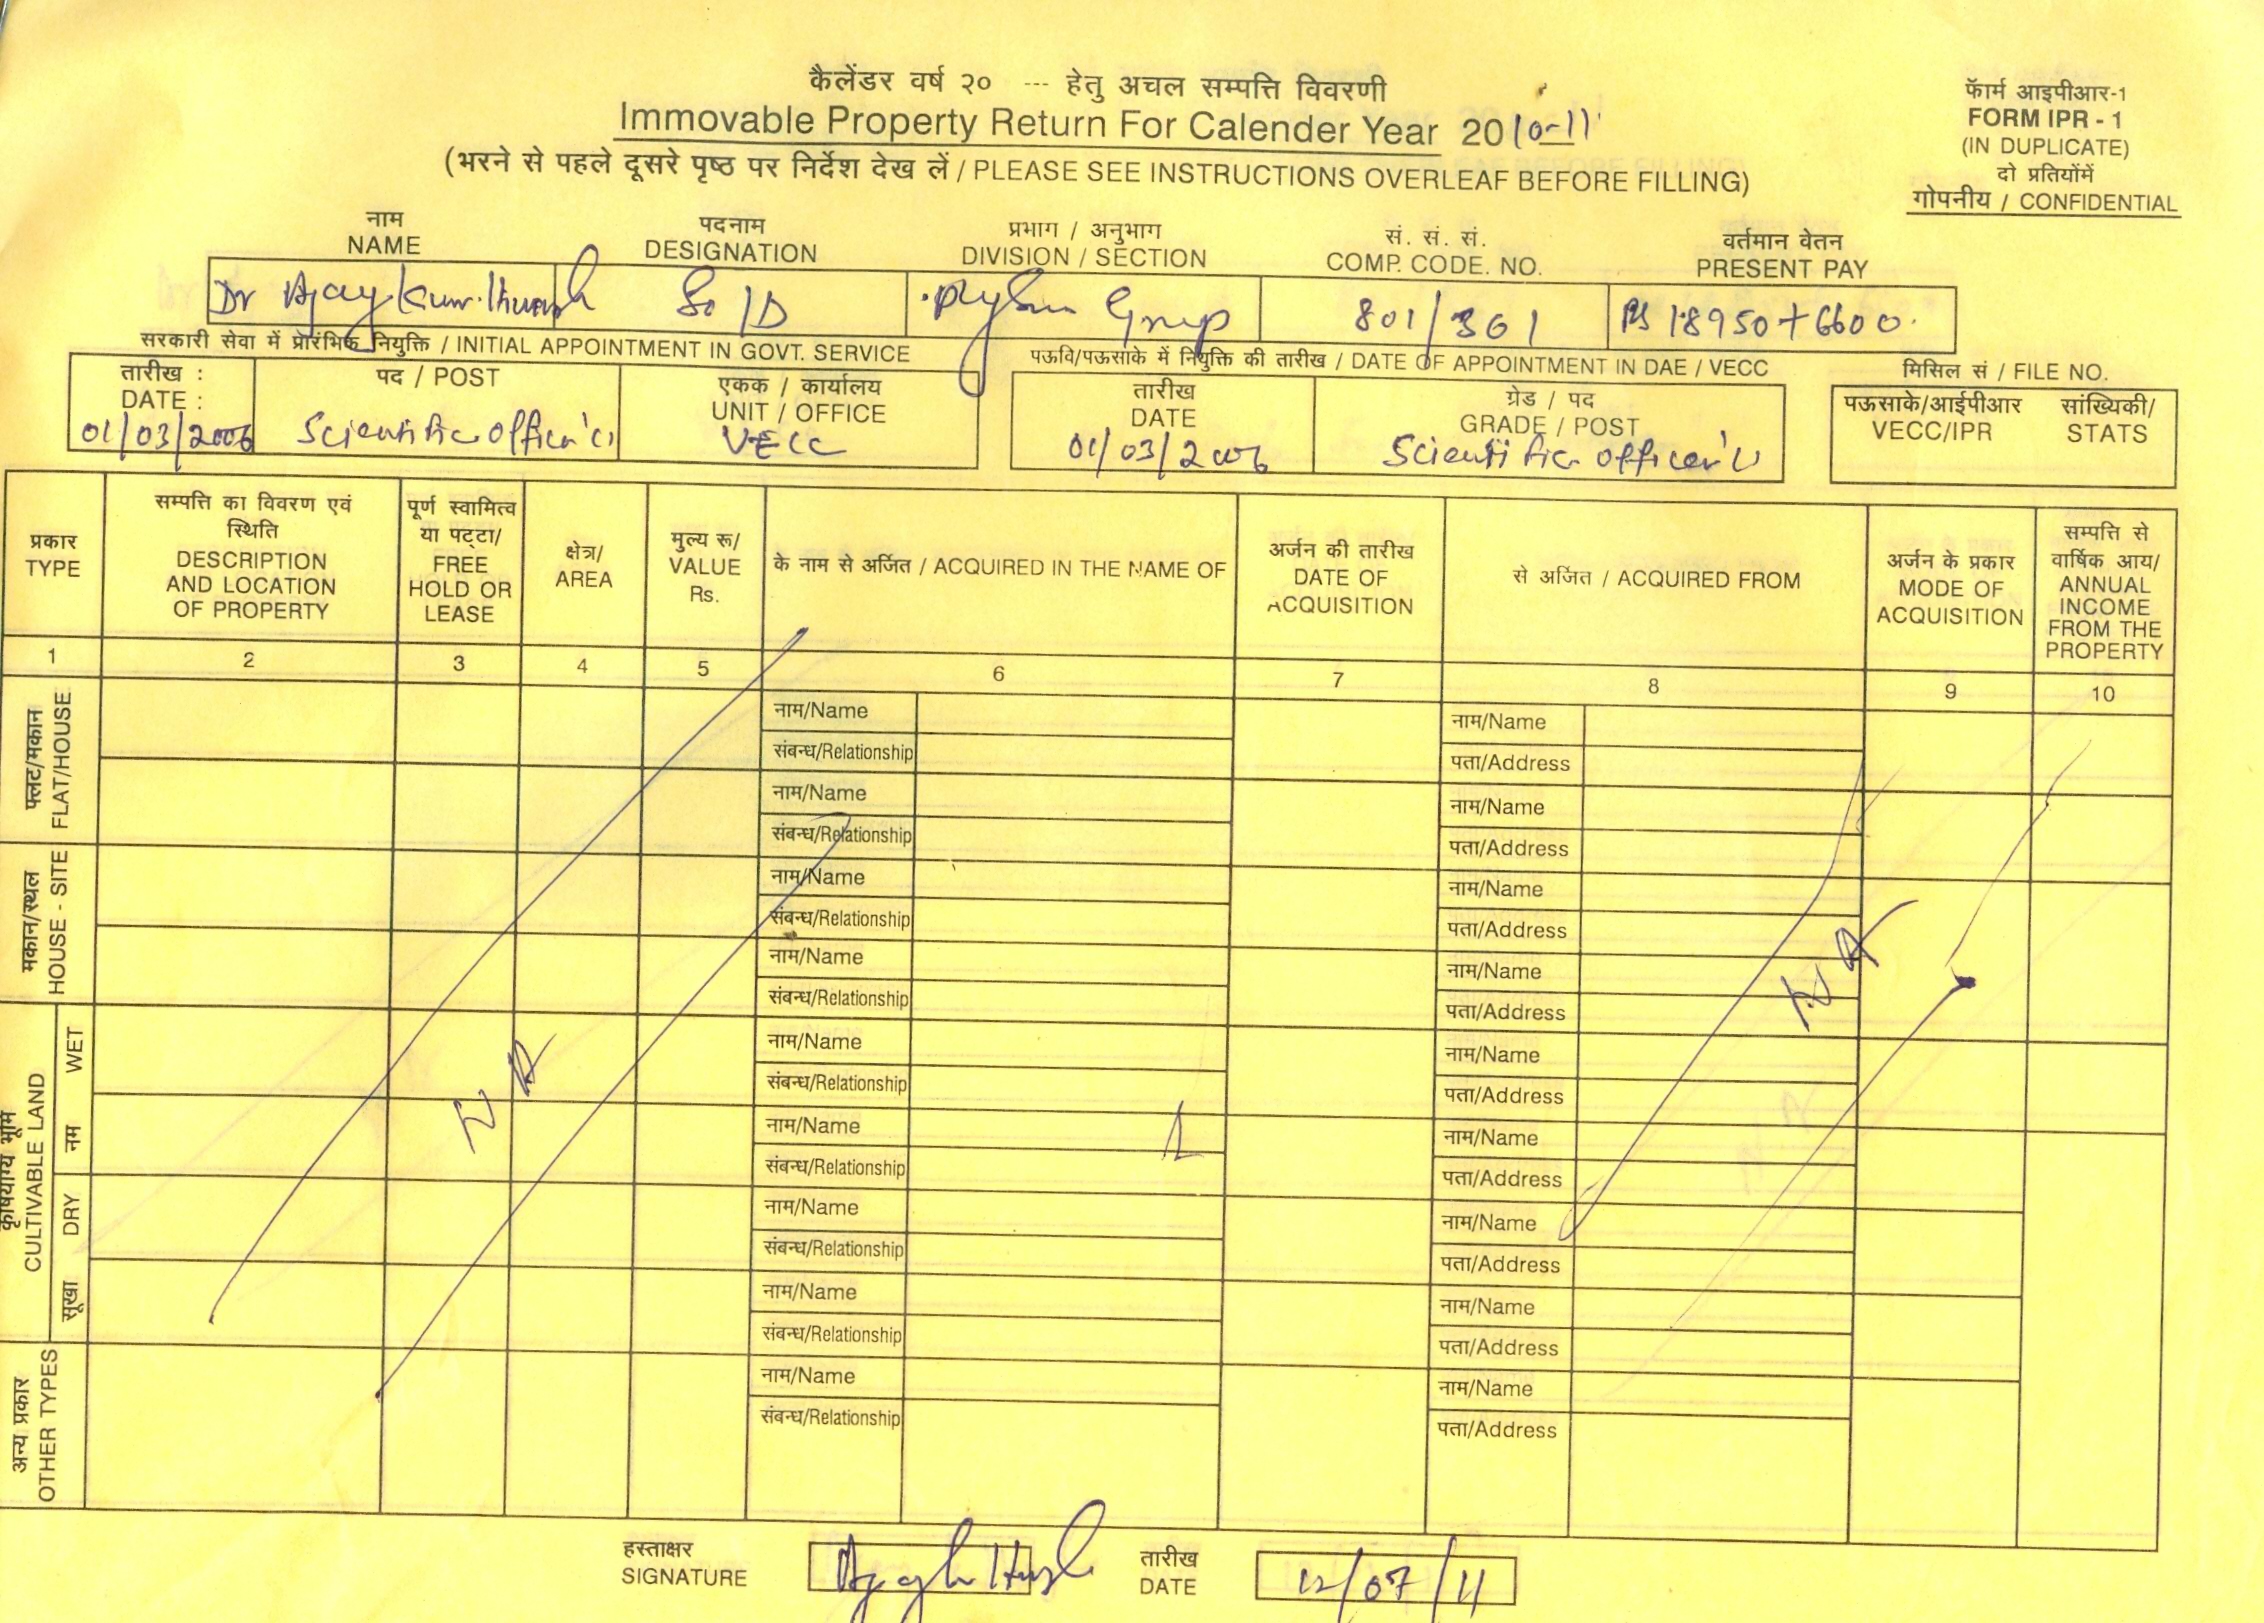 कैलेंडर वर्ष २० --- हेतु अचल सम्पत्ति विवरणी
Immovable Property Return For Calender Year 2010-11
(भरने से पहले दूसरे पृष्ठ पर निर्देश देख लें / PLEASE SEE INSTRUCTIONS OVERLEAF BEFORE FILLING)
फॅार्म आइपीआर-1
FORM IPR - 1
(IN DUPLICATE)
दो प्रतियोंमें
गोपनीय / CONFIDENTIAL
नाम पदनाम प्रभाग / अनुभाग सं. सं. सं. वर्तमान वेतन
NAME DESIGNATION DIVISION / SECTION COMP. CODE. NO. PRESENT PAY
Dr Ajay So/D Group 801/361 18950+6600
सरकारी सेवा में प्रारंभिक नियुक्ति / INITIAL APPOINTMENT IN GOVT. SERVICE
पऊवि/पऊसाके में नियुक्ति की तारीख / DATE OF APPOINTMENT IN DAE / VECC
मिसिल सं / FILE NO.
तारीख : पद / POST एकक / कार्यालय तारीख ग्रेड / पद पऊसाके/आईपीआर सांख्यिकी/
DATE : UNIT / OFFICE DATE GRADE / POST VECC/IPR STATS
01/03/2006 Scientific Officer 'C' VECC 01/03/2006 Scientific Officer 'C'
प्रकार
TYPE
सम्पत्ति का विवरण एवं
स्थिति
DESCRIPTION
AND LOCATION
OF PROPERTY
पूर्ण स्वामित्व
या पट्टा/
FREE
HOLD OR
LEASE
क्षेत्र/
AREA
मुल्य रू/
VALUE
Rs.
के नाम से अर्जित / ACQUIRED IN THE NAME OF
अर्जन की तारीख
DATE OF
ACQUISITION
से अर्जित / ACQUIRED FROM
अर्जन के प्रकार
MODE OF
ACQUISITION
सम्पत्ति से
वार्षिक आय/
ANNUAL
INCOME
FROM THE
PROPERTY
1 2 3 4 5 6 7 8 9 10
फ्लट/मकान
FLAT/HOUSE
नाम/Name नाम/Name
संबन्ध/Relationship पता/Address
नाम/Name नाम/Name
संबन्ध/Relationship पता/Address
मकान/स्थल
HOUSE - SITE
नाम/Name नाम/Name
संबन्ध/Relationship पता/Address
नाम/Name नाम/Name
संबन्ध/Relationship पता/Address
N A
कृषियोग्य भूमि
CULTIVABLE LAND
नम WET
नाम/Name नाम/Name
संबन्ध/Relationship पता/Address
N A
नाम/Name नाम/Name
संबन्ध/Relationship पता/Address
सूखा DRY
नाम/Name नाम/Name
संबन्ध/Relationship पता/Address
नाम/Name नाम/Name
संबन्ध/Relationship पता/Address
अन्य प्रकार
OTHER TYPES
नाम/Name नाम/Name
संबन्ध/Relationship पता/Address
हस्ताक्षर तारीख
SIGNATURE DATE 12/07/11